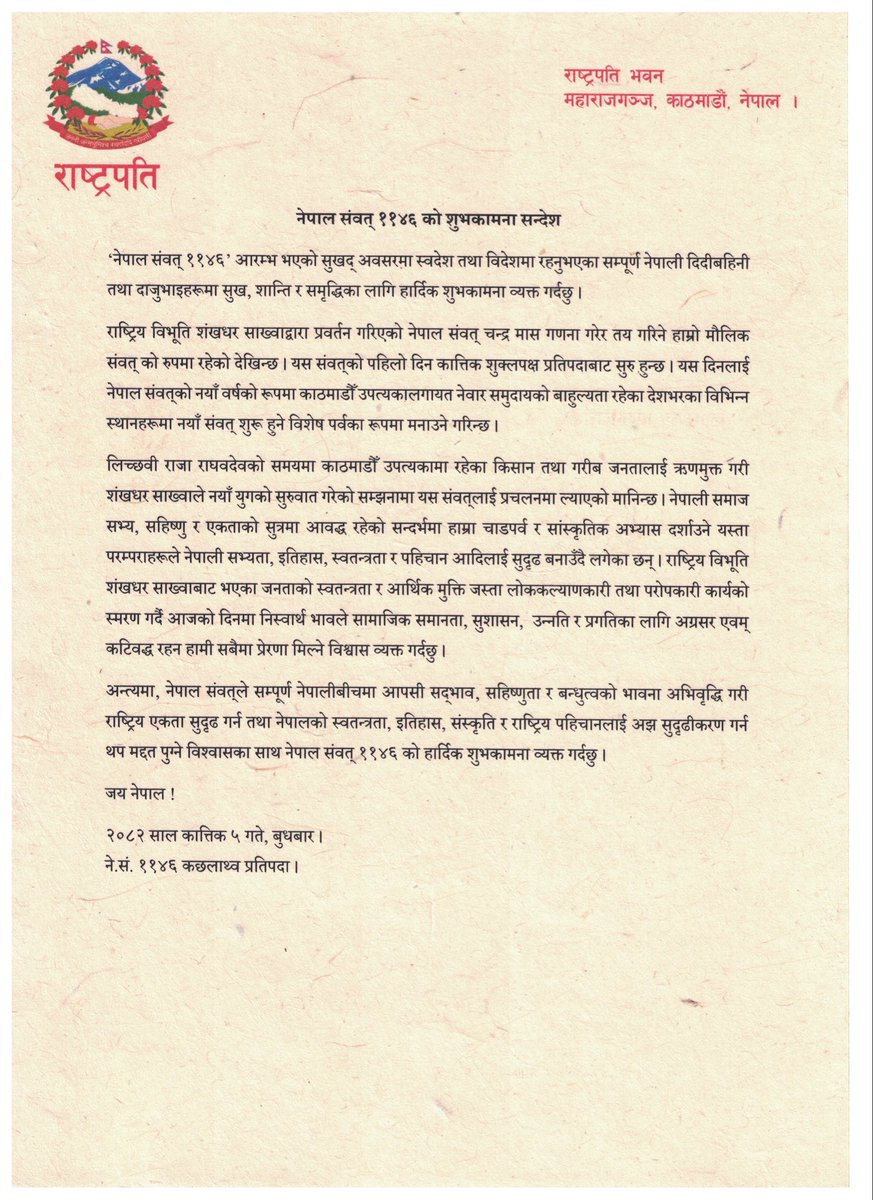 राष्ट्रपति भवन
महाराजगञ्ज, काठमाडौं, नेपाल ।
राष्ट्रपति
नेपाल संवत् ११४६ को शुभकामना सन्देश
‘नेपाल संवत् ११४६’ आरम्भ भएको सुखद् अवसरमा स्वदेश तथा विदेशमा रहनुभएका सम्पूर्ण नेपाली दिदीबहिनी
तथा दाजुभाइहरूमा सुख, शान्ति र समृद्धिका लागि हार्दिक शुभकामना व्यक्त गर्दछु ।
राष्ट्रिय विभूति शंखधर साख्वाद्वारा प्रवर्तन गरिएको नेपाल संवत् चन्द्र मास गणना गरेर तय गरिने हाम्रो मौलिक
संवत् को रुपमा रहेको देखिन्छ । यस संवत्को पहिलो दिन कात्तिक शुक्लपक्ष प्रतिपदाबाट सुरु हुन्छ । यस दिनलाई
नेपाल संवत्को नयाँ वर्षको रूपमा काठमाडौँ उपत्यकालगायत नेवार समुदायको बाहुल्यता रहेका देशभरका विभिन्न
स्थानहरूमा नयाँ संवत् शुरू हुने विशेष पर्वका रूपमा मनाउने गरिन्छ ।
लिच्छवी राजा राघवदेवको समयमा काठमाडौँ उपत्यकामा रहेका किसान तथा गरीब जनतालाई ऋणमुक्त गरी
शंखधर साख्वाले नयाँ युगको सुरुवात गरेको सम्झनामा यस संवत्लाई प्रचलनमा ल्याएको मानिन्छ । नेपाली समाज
सभ्य, सहिष्णु र एकताको सुत्रमा आवद्ध रहेको सन्दर्भमा हाम्रा चाडपर्व र सांस्कृतिक अभ्यास दर्शाउने यस्ता
परम्पराहरूले नेपाली सभ्यता, इतिहास, स्वतन्त्रता र पहिचान आदिलाई सुदृढ बनाउँदै लगेका छन् । राष्ट्रिय विभूति
शंखधर साख्वाबाट भएका जनताको स्वतन्त्रता र आर्थिक मुक्ति जस्ता लोककल्याणकारी तथा परोपकारी कार्यको
स्मरण गर्दै आजको दिनमा निस्वार्थ भावले सामाजिक समानता, सुशासन, उन्नति र प्रगतिका लागि अग्रसर एवम्
कटिवद्ध रहन हामी सबैमा प्रेरणा मिल्ने विश्वास व्यक्त गर्दछु ।
अन्त्यमा, नेपाल संवत्ले सम्पूर्ण नेपालीबीचमा आपसी सद्‌भाव, सहिष्णुता र बन्धुत्वको भावना अभिवृद्धि गरी
राष्ट्रिय एकता सुदृढ गर्न तथा नेपालको स्वतन्त्रता, इतिहास, संस्कृति र राष्ट्रिय पहिचानलाई अझ सुदृढीकरण गर्न
थप मद्दत पुग्ने विश्वासका साथ नेपाल संवत् ११४६ को हार्दिक शुभकामना व्यक्त गर्दछु ।
जय नेपाल !
२०८२ साल कात्तिक ५ गते, बुधबार ।
ने.सं. ११४६ कछलाथ्व प्रतिपदा ।